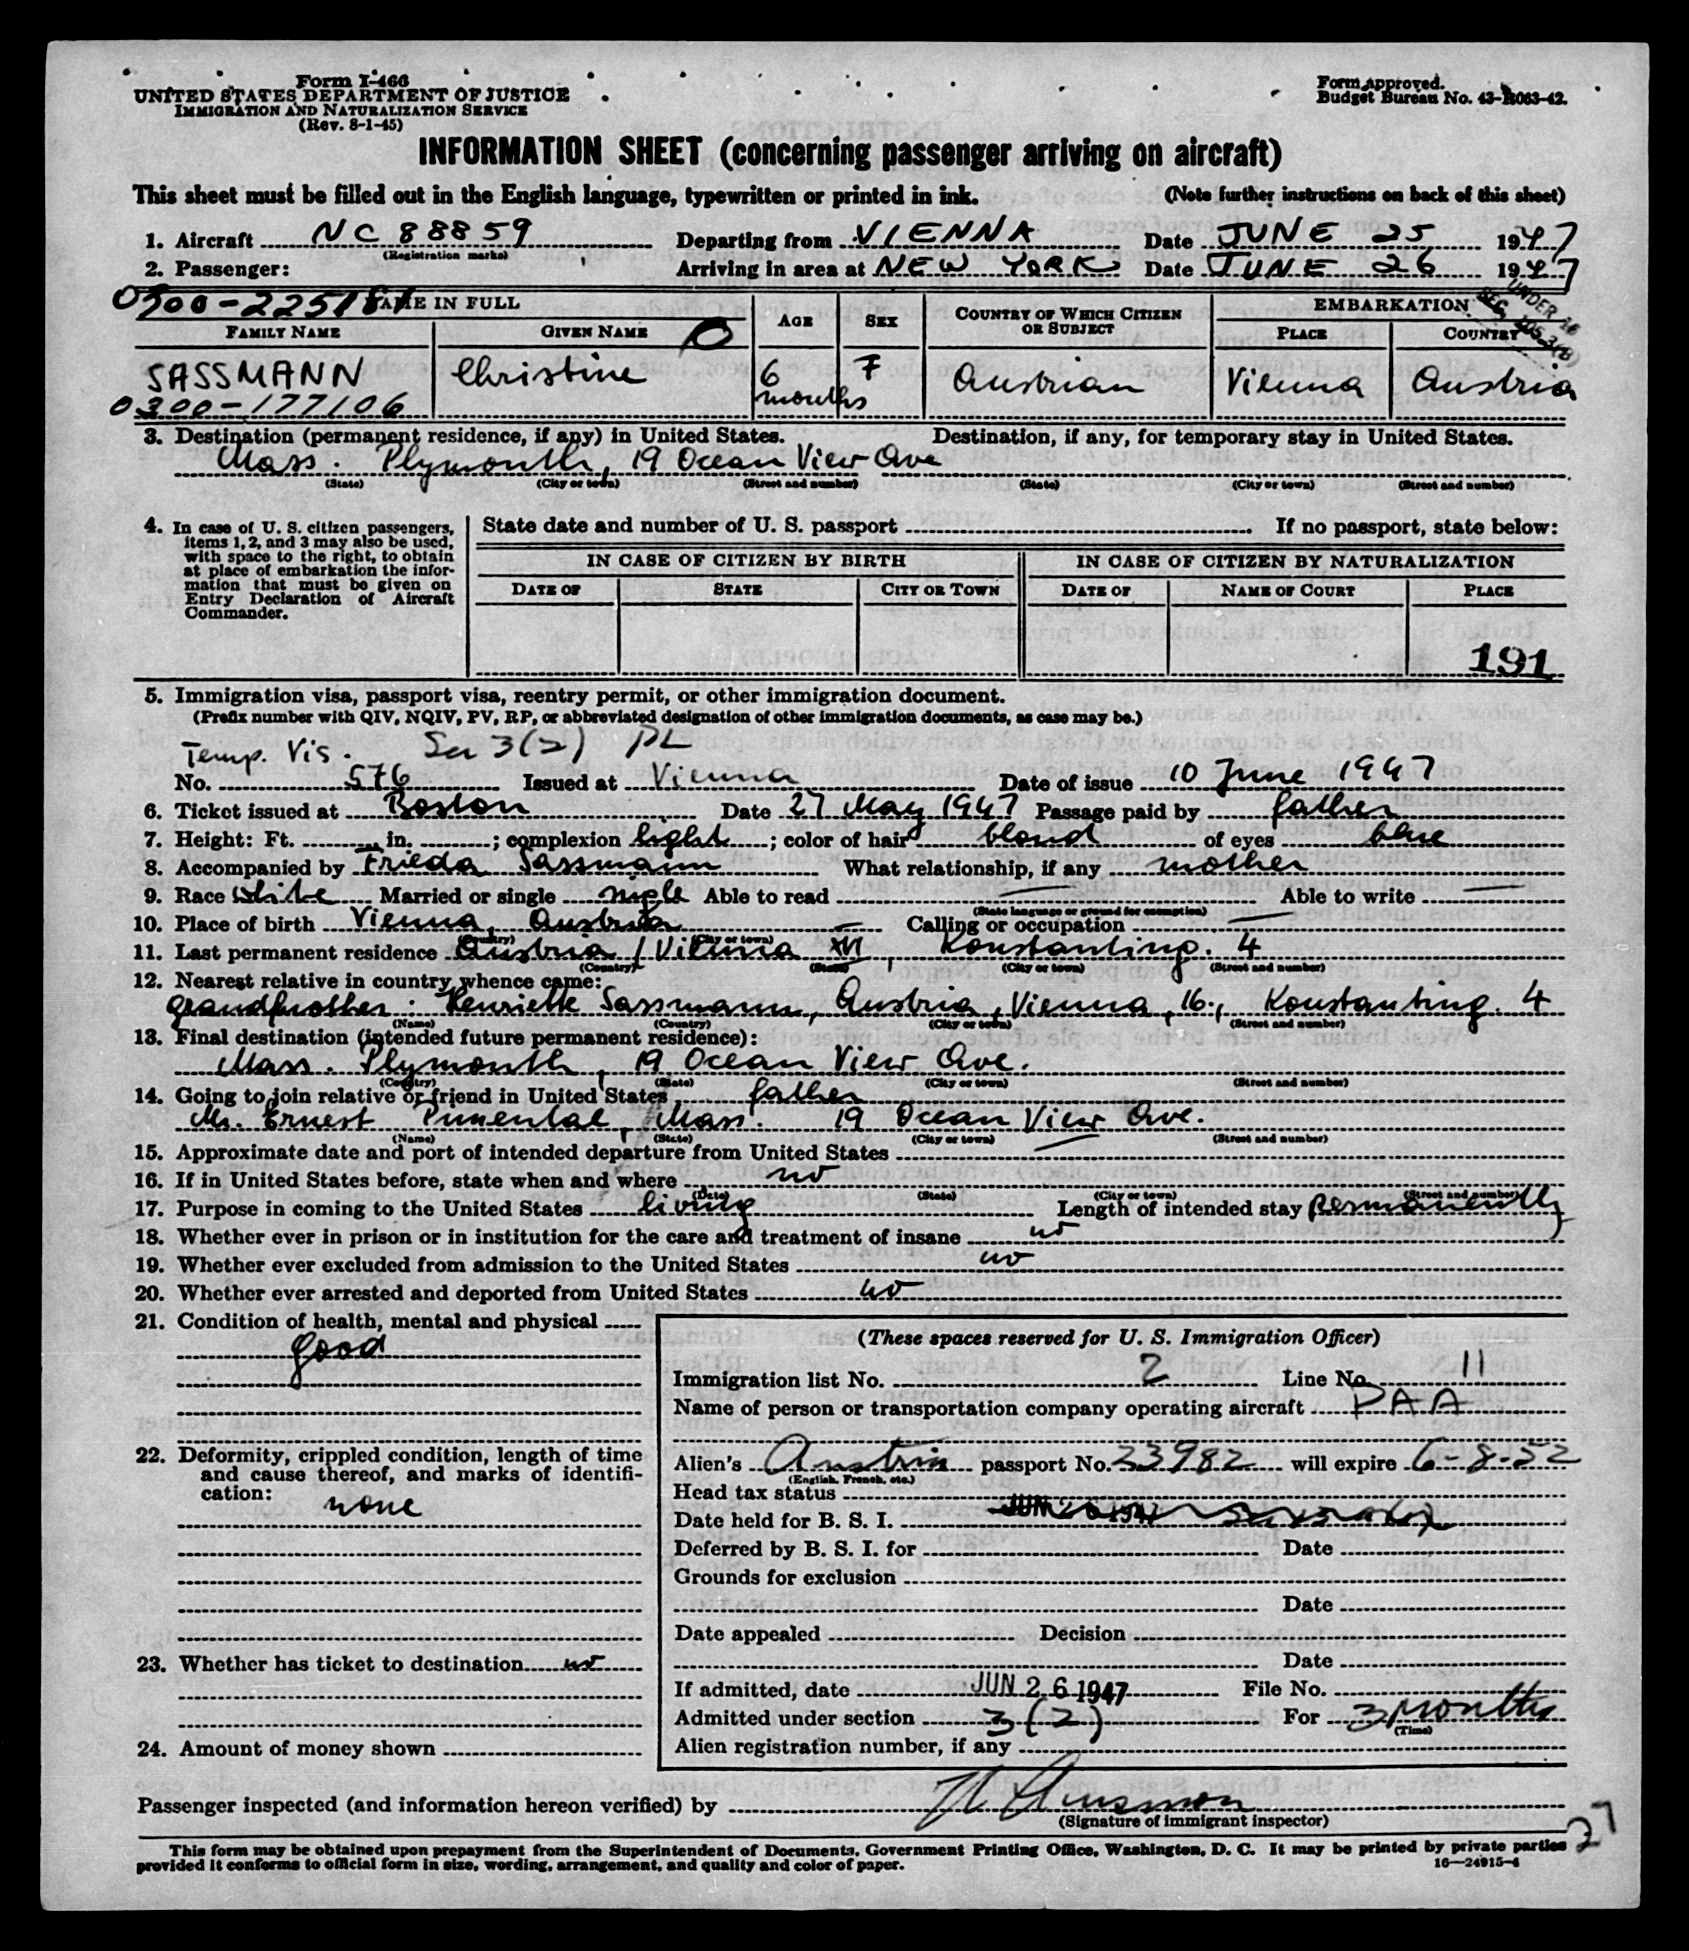 Form I-466
UNITED STATES DEPARTMENT OF JUSTICE
IMMIGRATION AND NATURALIZATION SERVICE
(Rev. 8-1-45)
Form approved.
Budget Bureau No. 43-R063-42.
INFORMATION SHEET (concerning passenger arriving on aircraft)
This sheet must be filled out in the English language, typewritten or printed in ink. (Note further instructions on back of this sheet)
1. Aircraft NC 88859 Departing from VIENNA Date JUNE 25 1947
(Registration marks)
2. Passenger: Arriving in area at NEW YORK Date JUNE 26 1947
0300-225181 NAME IN FULL AGE SEX COUNTRY OF WHICH CITIZEN OR SUBJECT EMBARKATION UNDER 16
FAMILY NAME GIVEN NAME PLACE COUNTRY
SASSMANN Christine 6 months F Austrian Vienna Austria
0300-177106
3. Destination (permanent residence, if any) in United States. Destination, if any, for temporary stay in United States.
Mass. Plymouth, 19 Ocean View Ave
(State) (City or town) (Street and number) (State) (City or town) (Street and number)
4. In case of U. S. citizen passengers, items 1, 2, and 3 may also be used, with space to the right, to obtain at place of embarkation the information that must be given on Entry Declaration of Aircraft Commander.
State date and number of U. S. passport If no passport, state below:
IN CASE OF CITIZEN BY BIRTH IN CASE OF CITIZEN BY NATURALIZATION
DATE OF STATE CITY OR TOWN DATE OF NAME OF COURT PLACE
191
5. Immigration visa, passport visa, reentry permit, or other immigration document.
(Prefix number with QIV, NQIV, PV, RP, or abbreviated designation of other immigration documents, as case may be.)
Temp. Vis. Sec 3(2) PL
No. 576 Issued at Vienna Date of issue 10 June 1947
6. Ticket issued at Boston Date 27 May 1947 Passage paid by father
7. Height: Ft. in. ; complexion light ; color of hair blond of eyes blue
8. Accompanied by Frieda Sassmann What relationship, if any mother
9. Race White Married or single single Able to read Able to write
(State language or ground for exemption)
10. Place of birth Vienna, Austria Calling or occupation
(Country) (City or town)
11. Last permanent residence Austria / Vienna XVI, Konstanting. 4
(Country) (State) (City or town) (Street and number)
12. Nearest relative in country whence came:
grandmother: Henriette Sassmann, Austria, Vienna, 16., Konstanting. 4
(Name) (Country) (City or town) (Street and number)
13. Final destination (intended future permanent residence):
Mass. Plymouth, 19 Ocean View Ave.
(Country) (State) (City or town) (Street and number)
14. Going to join relative or friend in United States father
Mr. Ernest Pimental, Mass. 19 Ocean View Ave.
(Name) (State) (City or town) (Street and number)
15. Approximate date and port of intended departure from United States
16. If in United States before, state when and where no
(Date) (State) (City or town) (Street and number)
17. Purpose in coming to the United States living Length of intended stay permanently
18. Whether ever in prison or in institution for the care and treatment of insane no
19. Whether ever excluded from admission to the United States no
20. Whether ever arrested and deported from United States no
21. Condition of health, mental and physical
good
22. Deformity, crippled condition, length of time and cause thereof, and marks of identification:
none
23. Whether has ticket to destination no
24. Amount of money shown
(These spaces reserved for U. S. Immigration Officer)
Immigration list No. 2 Line No. 11
Name of person or transportation company operating aircraft PAA
Alien's Austria passport No. 23982 will expire 6-8-52
(English, French, etc.)
Head tax status
Date held for B. S. I. JUN 26 1947
Deferred by B. S. I. for Date
Grounds for exclusion
Date
Date appealed Decision
Date
If admitted, date JUN 26 1947 File No.
Admitted under section 3(2) For 3 months
(Time)
Alien registration number, if any
Passenger inspected (and information hereon verified) by
(Signature of immigrant inspector)
27
This form may be obtained upon prepayment from the Superintendent of Documents, Government Printing Office, Washington, D. C. It may be printed by private parties
provided it conforms to official form in size, wording, arrangement, and quality and color of paper. 16—24915-4